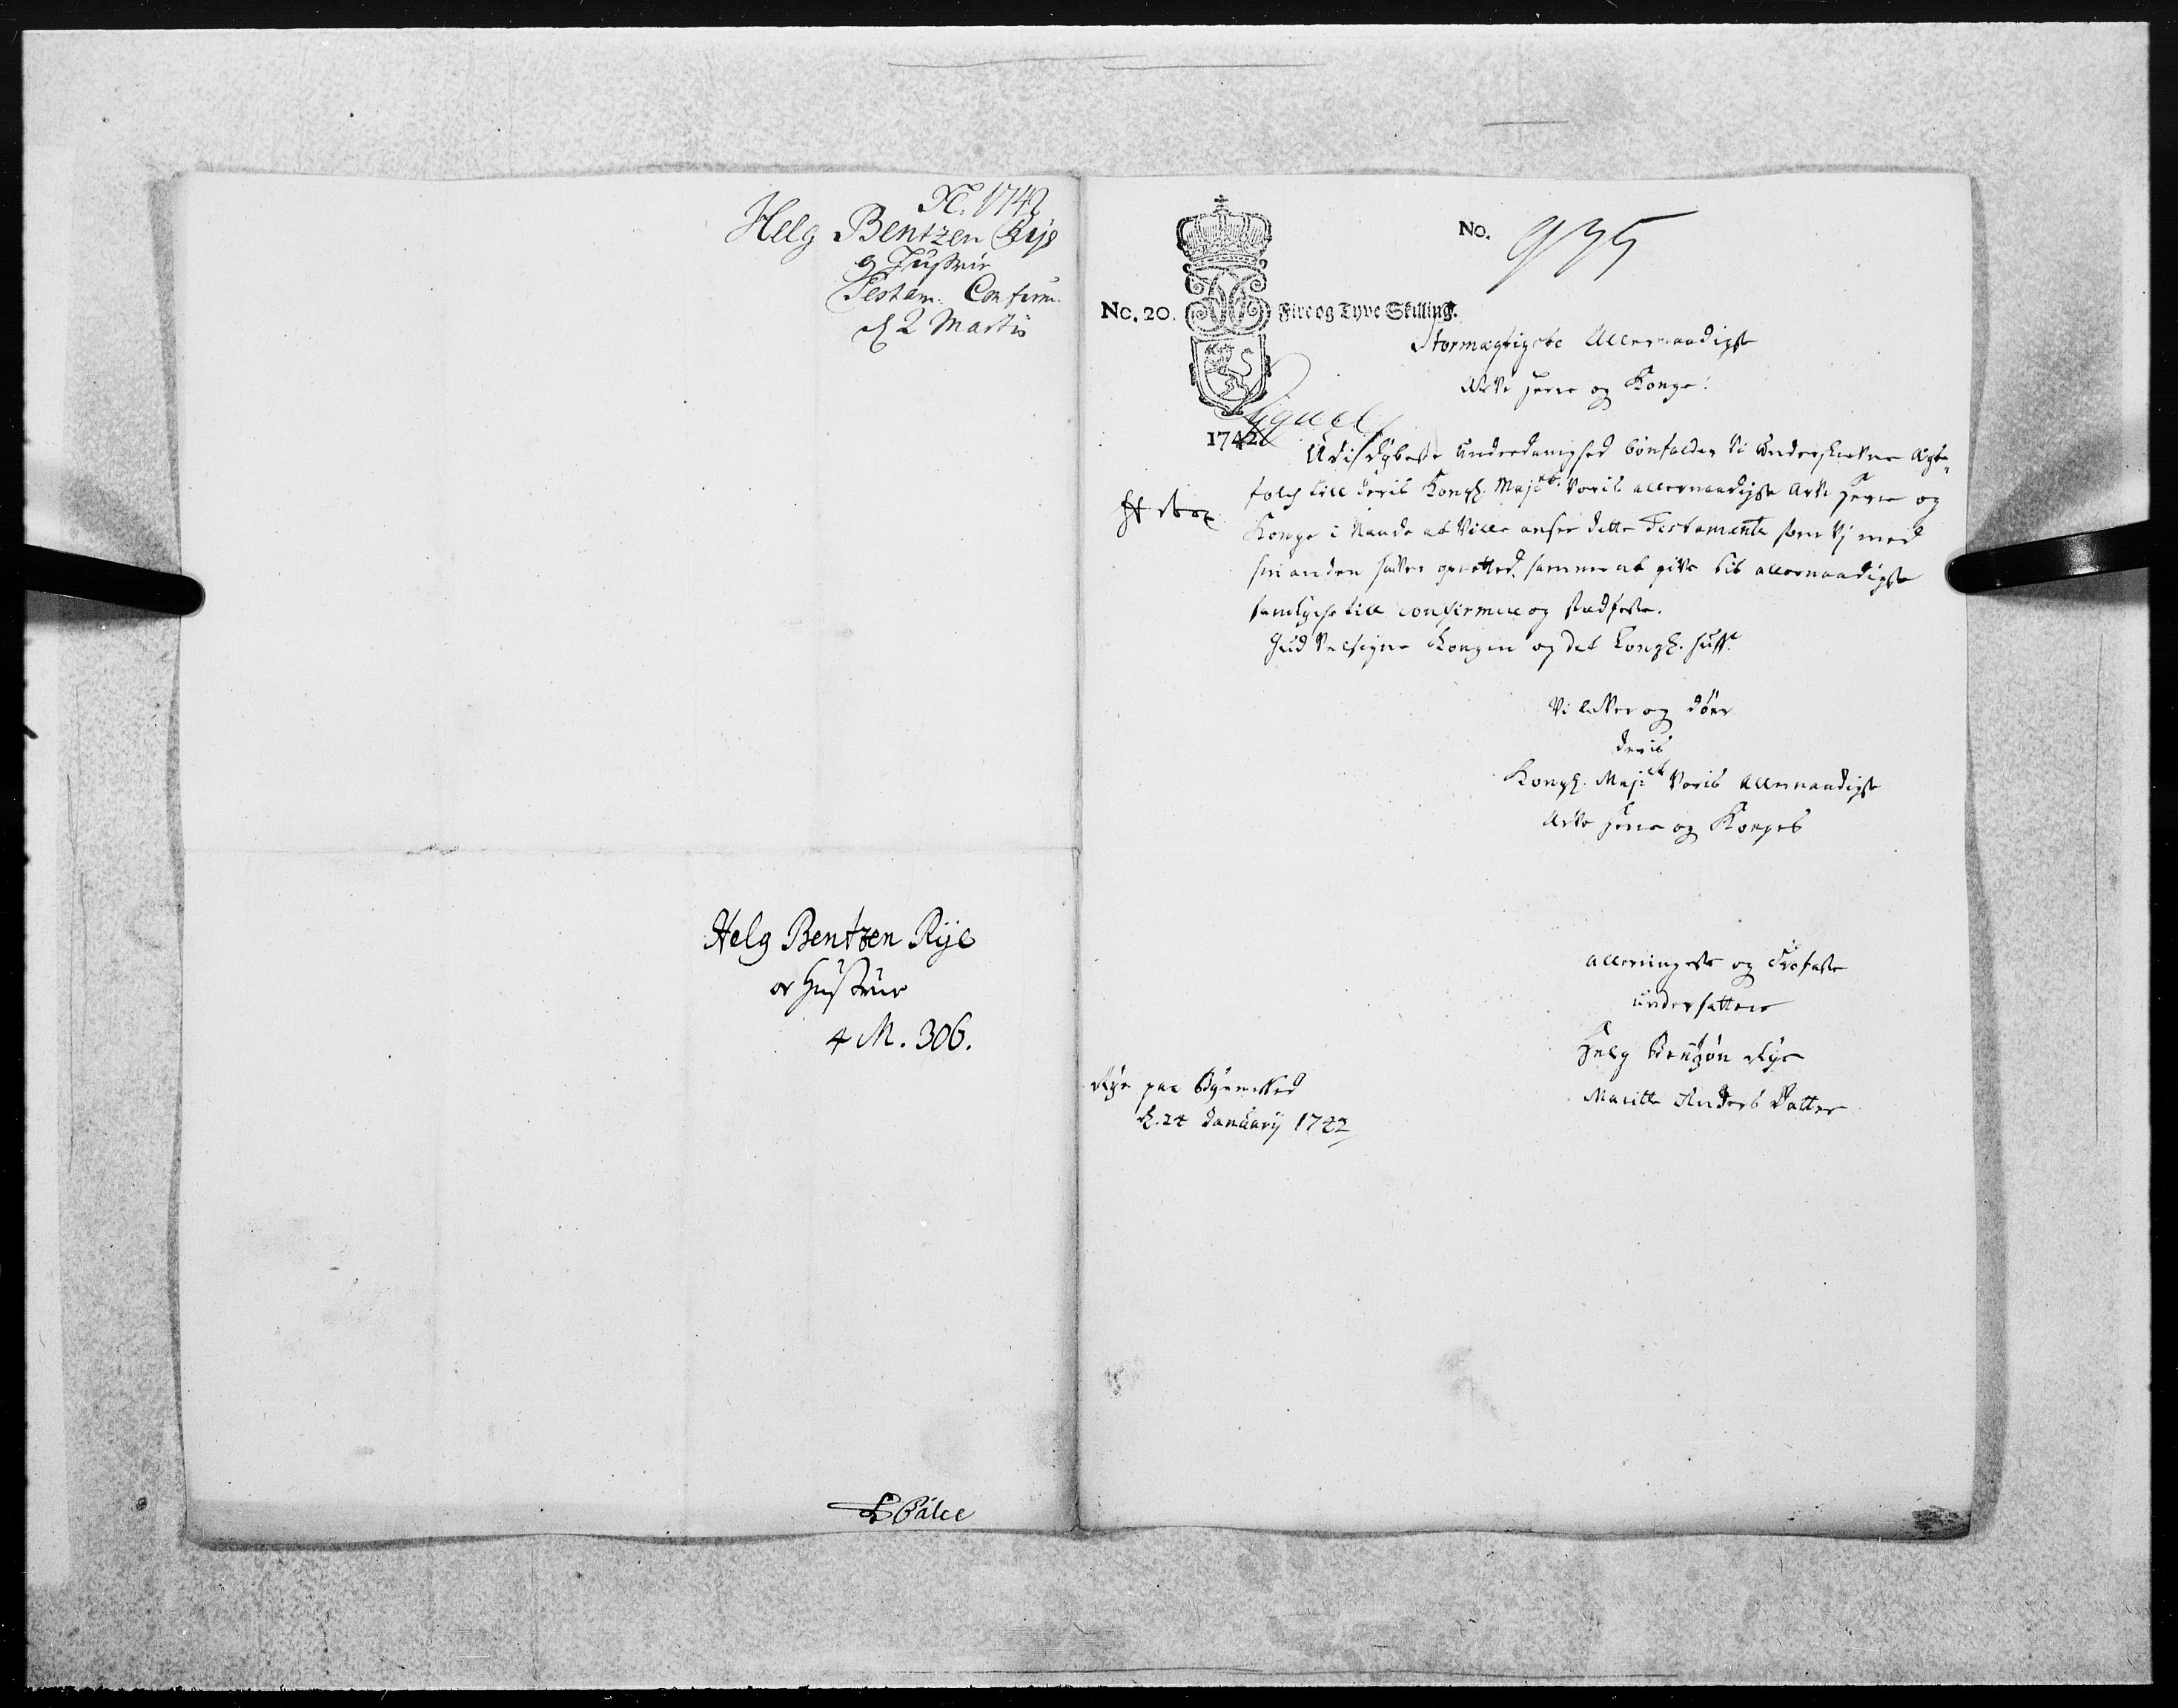 Nc. 1742
Helg Bentzen Rye
og Hustrue
Testam. Confirm.
d 2 Martis
Helg Bentzen Rye
og Hustrue
4 M. 306.
No. 935
No. 20. Fire og Tyve Skilling.
1742
Stormægtigste Allernaadigste
Arve Herre og Konge!
Udi dybeste underdanighed bønfalder Vi Underskrevne Ægte-
folch till deris Kongl. Maj:ts Voris allernaadigste Arve Herre og
Konge i Naade at Ville ansee dette Testamente som Vj med
hin anden haver opretted, samme at give sit allernaadigste
samtyche till confirmere og stadfeste.
Gud Velsigne Kongen og det Kongl. Huss.
Vi lever og døer
deris
Kongl. Maj:ts Voris Allernaadigste
Arve Herre og Konges
allerringeste og Troefaste
undersatter
Helg Bentzøn Rye
Maritte Anders Datter
Rye paa Byenesset
d. 24 January 1742